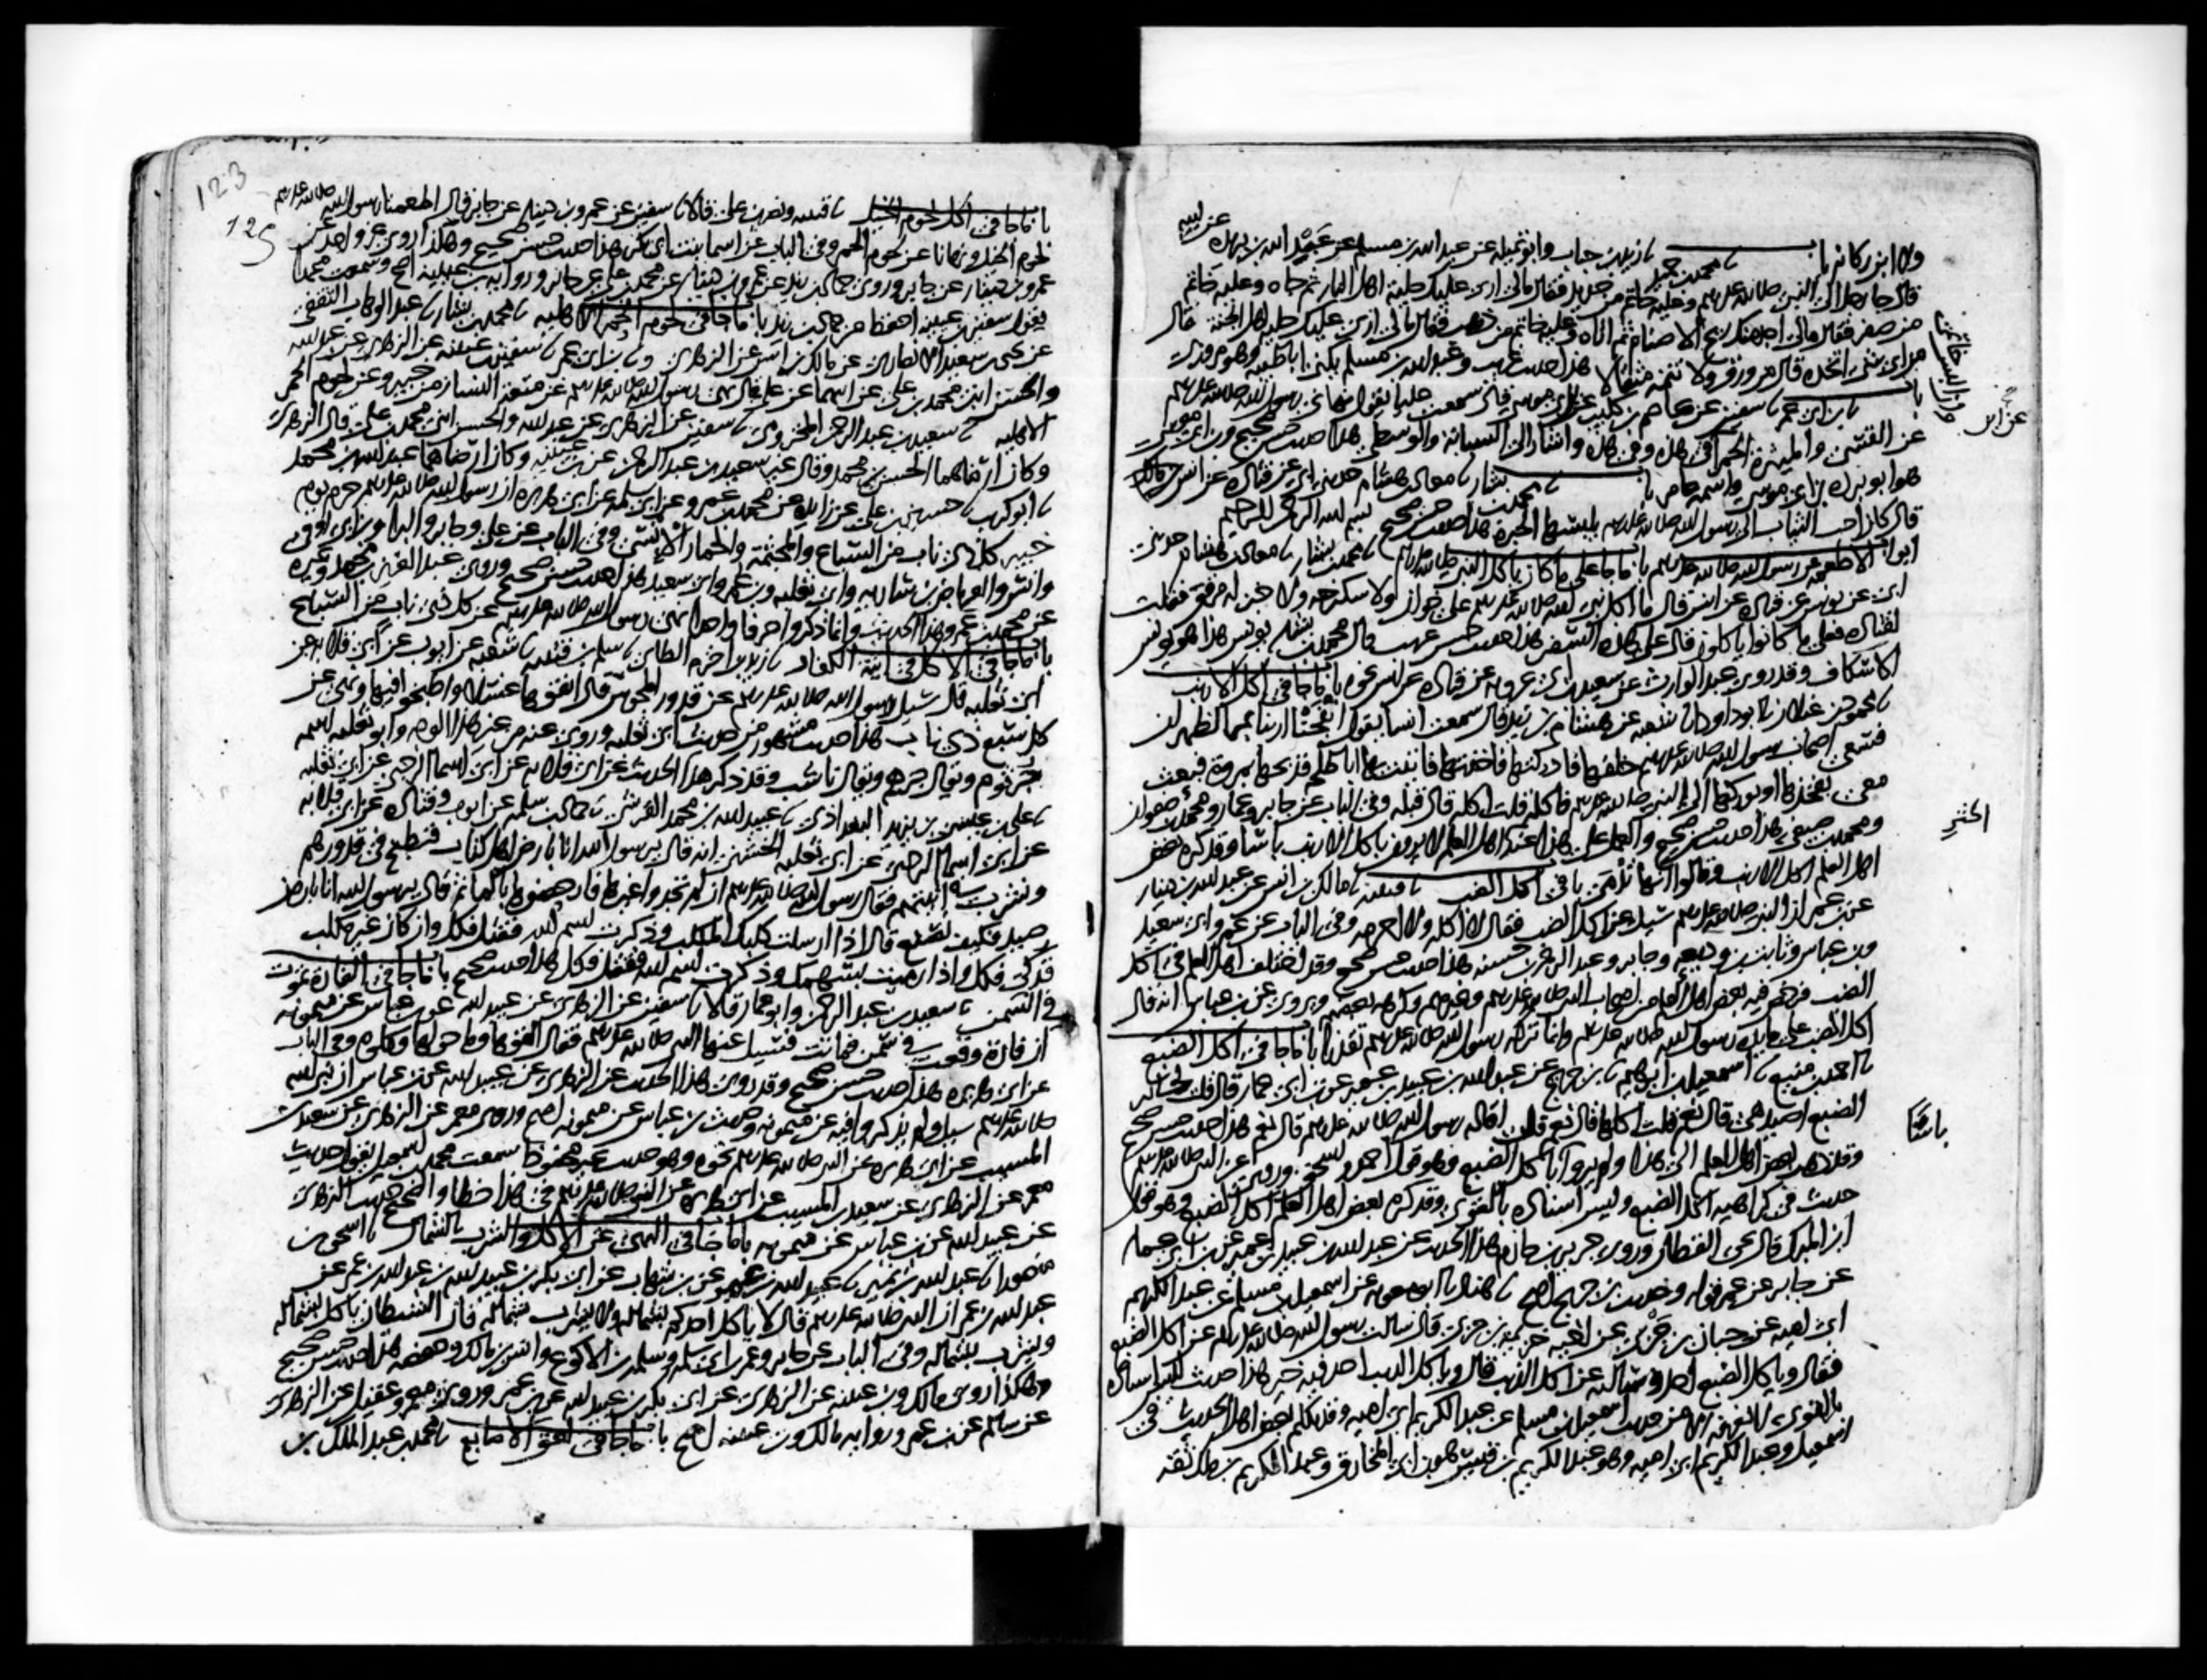 ولا ابن ركانه باب نا محمد بن حميد نا زيد بن حباب وابو تميله عن عبد الله بن مسلم عن عبد الله بن بريده عن ابيه
قال جا رجل الى النبي صلى الله عليه وسلم وعليه خاتم من حديد فقال مالي ارى عليك حلية اهل النار ثم جاه وعليه خاتم
من صفر فقال مالي اجد منك ريح الاصنام ثم اتاه وعليه خاتم من ذهب فقال مالي ارى عليك حلية اهل الجنة قال
من اي شي اتخذه قال من ورق ولا تتمه مثقالا هذا حديث غريب وعبد الله بن مسلم يكنى ابا طيبه وهو مروزي
باب نا بن ابي عمر نا سفين عن عاصم بن كليب عن ابن ابي موسى قال سمعت عليا يقول نهاني رسول الله صلى الله عليه وسلم
عن القسي والميثرة الحمرا في هذه وفي هذه واشار الى السبابة والوسطى هذا حديث حسن صحيح وبن ابي موسى
هو ابو برده بن ابي موسى واسمه عامر باب نا محمد بن بشار نا معاذ بن هشام حدثني ابي عن قتاده عن انس بن مالك
قال كان احب الثياب الى رسول الله صلى الله عليه وسلم يلبسها الحبرة هذا حديث حسن صحيح بسم الله الرحمن الرحيم
ابواب الاطعمه عن رسول الله صلى الله عليه وسلم باب ما جا على ما كان ياكل النبي صلى الله عليه وسلم نا محمد بن بشار نا معاذ بن هشام حدثني
ابي عن يونس عن قتاده عن انس قال ما اكل نبي الله صلى الله عليه وسلم على خوان ولا سكرجه ولا خبز له مرقق فقلت
لقتاده فعلى ما كانوا ياكلون قال على هذه السفر هذا حديث حسن غريب قال محمد بن بشار يونس هذا هو يونس
الاسكاف وقد روى عبد الوارث عن سعيد بن ابي عروبه عن قتاده عن انس نحوه باب ما جا في اكل الارنب
نا محمود بن غيلان نا ابو داود نا شعبه عن هشام بن زيد قال سمعت انسا يقول انفجنا ارنبا بمر الظهران
فسعى اصحاب رسول الله صلى الله عليه وسلم خلفها فادركتها فاخذتها فاتيت بها ابا طلحه فذبحها بمروة فبعث
معي بفخذها او بوركها الى النبي صلى الله عليه وسلم فاكله قلت اكله قال قبله وفي الباب عن جابر وعمار ومحمد بن صفوان
ومحمد بن صيفي هذا حديث حسن صحيح والعمل على هذا عند اكثر اهل العلم لا يرون باكل الارنب باسا وقد كره بعض
اهل العلم اكل الارنب وقالوا انها تدمى باب في اكل الضب نا قتيبه نا مالك بن انس عن عبد الله بن دينار
عن بن عمر ان النبي صلى الله عليه وسلم سيل عن اكل الضب فقال لا اكله ولا احرمه وفي الباب عن عمر وابي سعيد
وبن عباس وثابت بن وديعه وجابر وعبد الرحمن بن حسنه هذا حديث حسن صحيح وقد اختلف اهل العلم في اكل
الضب فرخص فيه بعض اهل العلم من اصحاب النبي صلى الله عليه وسلم وغيرهم وكرهه بعضهم ويروى عن بن عباس انه قال
اكل الضب على مايدة رسول الله صلى الله عليه وسلم وانما تركه رسول الله صلى الله عليه وسلم تقذرا باب ما جا في اكل الضبع
نا احمد بن منيع نا اسمعيل بن ابرهيم نا بن جريج عن عبد الله بن عبيد بن عمير عن بن ابي عمار قال قلت لجابر
الضبع اصيد هي قال نعم قلت اكلها قال نعم قلت اقاله رسول الله صلى الله عليه وسلم قال نعم هذا حديث حسن صحيح
وقد ذهب بعض اهل العلم الى هذا ولم يروا باكل الضبع وهو قول احمد واسحق وروي عن النبي صلى الله عليه وسلم
حديث في كراهيه اكل الضبع وليس اسناده بالقوي وقد كره بعض اهل العلم اكل الضبع وهو قول
ابن المبرك قال يحيى القطان وروى جرير بن حازم هذا الحديث عن عبد الله بن عبيد بن عمير عن بن ابي عمار
عن جابر عن عمر قوله وحديث بن جريج اصح نا هناد نا ابو معويه عن اسمعيل بن مسلم عن عبد الكريم
ابن ابي اميه عن حبان بن جزي عن اخيه خزيمه بن جزي قال سالت رسول الله صلى الله عليه وسلم عن اكل الضبع
فقال وياكل الضبع احد وسالته عن اكل الذيب قال وياكل الذيب احد فيه خير هذا حديث ليس اسناده
بالقوي لا نعرفه الا من حديث اسمعيل بن مسلم عن عبد الكريم ابي اميه وقد تكلم بعض اهل الحديث في
اسمعيل وعبد الكريم ابي اميه وهو عبد الكريم بن قيس هو بن ابي المخارق وعبد الكريم بن ملك ثقه
عن ابن
اكثر
باسا
123
125
باب ما جا في اكل لحوم الخيل نا قتيبه ونصر بن علي قالا نا سفين عن عمرو بن دينار عن جابر قال اطعمنا رسول الله صلى الله عليه وسلم
لحوم الخيل ونهانا عن لحوم الحمر وفي الباب عن اسما بنت ابي بكر هذا حديث حسن صحيح وهكذا روى غير واحد عن
عمرو بن دينار عن جابر وروى حماد بن زيد عن عمرو بن دينار عن محمد بن علي عن جابر وروايه بن عيينه اصح وسمعت محمدا
يقول سفين بن عيينه احفظ من حماد بن زيد باب ما جا في لحوم الحمر الاهليه نا محمد بن بشار نا عبد الوهاب الثقفي
عن يحيى بن سعيد الانصاري عن مالك بن انس عن الزهري ونا بن ابي عمر نا سفين بن عيينه عن الزهري عن عبد الله
والحسن ابني محمد بن علي عن ابيهما عن علي قال نهى رسول الله صلى الله عليه وسلم عن متعة النسا زمن خيبر وعن لحوم الحمر
الاهليه نا سعيد بن عبد الرحمن المخزومي نا سفين عن الزهري عن عبد الله والحسن ابني محمد بن علي قال الزهري
وكان ارضاهما الحسن بن محمد وقال غير سعيد بن عبد الرحمن عن بن عيينه وكان ارضاهما عبد الله بن محمد
نا ابو كريب نا حسين بن علي عن زايده عن محمد بن عمرو عن ابي سلمه عن ابي هريره ان رسول الله صلى الله عليه وسلم حرم يوم
خيبر كل ذي ناب من السباع والمجثمة والحمار الانسي وفي الباب عن علي وجابر والبرا وبن ابي اوفى
وانس والعرباض بن ساريه وابي ثعلبه وبن عمر وابي سعيد هذا حديث حسن صحيح وروى عبد العزيز بن محمد وغيره
عن محمد بن عمرو هذا الحديث وانما ذكروا حرفا واحدا نهى رسول الله صلى الله عليه وسلم عن كل ذي ناب من السباع
باب ما جا في الاكل في انية الكفار نا زيد بن اخزم الطاي نا سلم بن قتيبه نا شعبه عن ايوب عن ابي قلابه عن
ابي ثعلبه قال سيل رسول الله صلى الله عليه وسلم عن قدور المجوس قال انقوها غسلا واطبخوا فيها ونهى عن
كل سبع ذي ناب هذا حديث مشهور من حديث ابي ثعلبه وروي عنه من غير هذا الوجه وابو ثعلبه اسمه
جرثوم ويقال جرهم ويقال ناشب وقد ذكر هذا الحديث عن ابي قلابه عن ابي اسما الرحبي عن ابي ثعلبه
نا علي بن عيسى بن يزيد البغدادي نا عبيد الله بن محمد القرشي نا حماد بن سلمه عن ايوب وقتاده عن ابي قلابه
عن ابي اسما الرحبي عن ابي ثعلبه الخشني انه قال يرسول الله انا بارض اهل كتاب فنطبخ في قدورهم
ونشرب في انيتهم فقال رسول الله صلى الله عليه وسلم ان لم تجدوا غيرها فارحضوها بالما ثم قال يرسول الله انا بارض
صيد فكيف نصنع قال اذا ارسلت كلبك المكلب وذكرت اسم الله فقتل فكل وان كان غير مكلب
فذكي فكل واذا رميت بسهمك وذكرت اسم الله فقتل فكل هذا حديث صحيح باب ما جا في الفارة تموت
في السمن نا سعيد بن عبد الرحمن وابو عمار قالا نا سفين عن الزهري عن عبيد الله عن بن عباس عن ميمونه
ان فارة وقعت في سمن فماتت فسيل عنها النبي صلى الله عليه وسلم فقال القوها وما حولها وكلوه وفي الباب
عن ابي هريره هذا حديث حسن صحيح وقد روي هذا الحديث عن الزهري عن عبيد الله عن بن عباس ان نبي الله
صلى الله عليه وسلم سيل ولم يذكروا فيه عن ميمونه وحديث بن عباس عن ميمونه اصح وروى معمر عن الزهري عن سعيد بن
المسيب عن ابي هريره عن النبي صلى الله عليه وسلم نحوه وهو حديث غير محفوظ سمعت محمد بن اسمعيل يقول حديث
معمر عن الزهري عن سعيد بن المسيب عن ابي هريره عن النبي صلى الله عليه وسلم في هذا خطا والصحيح حديث الزهري
عن عبيد الله عن بن عباس عن ميمونه باب ما جا في النهي عن الاكل والشرب بالشمال نا اسحق بن
منصور نا عبد الله بن نمير نا عبيد الله بن عمر عن بن شهاب عن ابي بكر بن عبيد الله بن عبد الله بن عمر عن
عبد الله بن عمر ان النبي صلى الله عليه وسلم قال لا ياكل احدكم بشماله ولا يشرب بشماله فان الشيطان ياكل بشماله
ويشرب بشماله وفي الباب عن جابر وعمر بن ابي سلمه وسلمه بن الاكوع وانس بن مالك وحفصه هذا حديث حسن صحيح
وهكذا روى مالك وبن عيينه عن الزهري عن ابي بكر بن عبيد الله عن بن عمر وروى معمر وعقيل عن الزهري
عن سالم عن بن عمر وروايه مالك وبن عيينه اصح باب ما جا في لعق الاصابع نا محمد بن عبد الملك بن